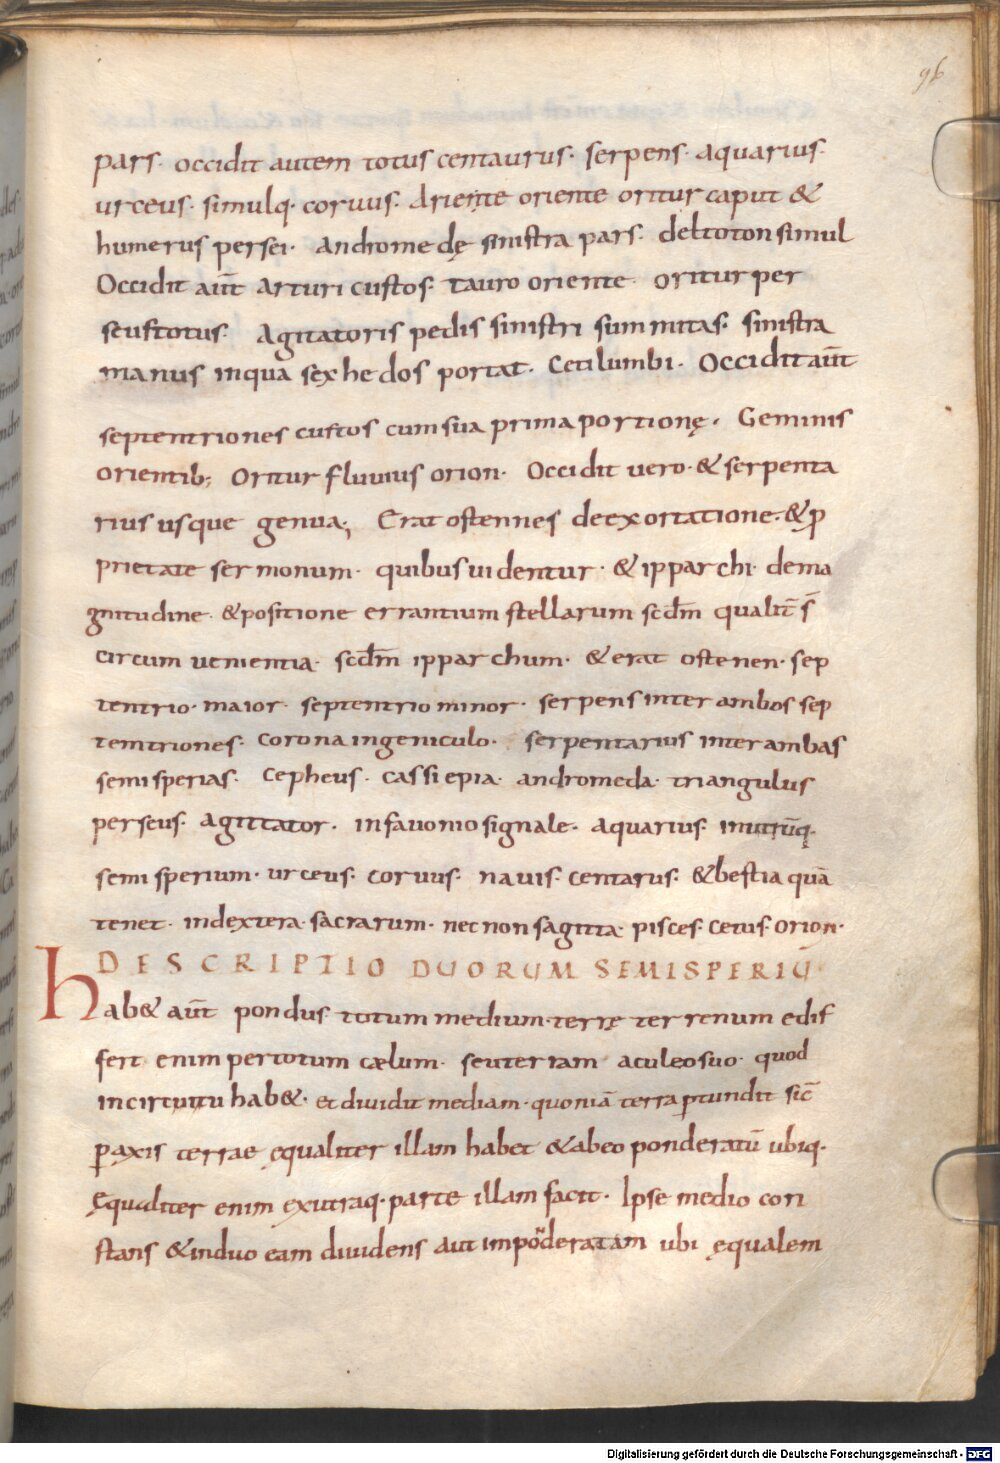 96
pars. occidit autem totus centaurus. serpens. aquarius.
urceus. simulq. coruus. Ariente oriente oritur caput &
humerus persei. andromedę sinistra pars. deltoton simul
Occidit aut̄ arturi custos. tauro oriente. oritur per
seus totus. Agitatoris pedis sinistri summitas. sinistra
manus inqua sex hedos portat. Ceti lumbi. Occidit aut̄
septentriones custos cum sua prima portionę. Geminis
orientib; Oritur fluuius orion. Occidit uero. & serpenta
rius usque genua; Erat ostennes deexortatione. & p
prietate sermonum. quibus uidentur. & ipparchi. dema
gnitudine. & positione errantium stellarum scdm̄ qualit̄ s̄
circum uenientia. scdm̄ ipparchum. & erat ostenen. sep
tentrio. maior. septentrio minor. serpens inter ambos sep
temtriones. Corona ingeniculo. serpentarius inter ambas
semisperias. Cepheus. cassiepia. andromeda. triangulus
perseus. agitator. infauonio signale. aquarius. inutrūq.
semisperium. urceus. coruus. nauis. centarus. & bestia quā
tenet. indextera. sacrarum. necnon sagitta. pisces. cetus. orion.
DESCRIPTIO DUORUM SEMISPERIU
hab& aut̄ pondus totum medium. terrę terrenum edis
fert enim pertotum cælum. seuterram aculeo suo. quod
incircuitu hab&. et diuidit mediam. quoniā terra ptundit sic̄
paxis terrae ęqualiter illam habet & abeo ponderatū ubiq.
ęqualiter enim exutraq. parte illam facit. Ipse medio con
stans & induo eam diuidens aut impōderatam ubi ęqualem
Digitalisierung gefördert durch die Deutsche Forschungsgemeinschaft - DFG